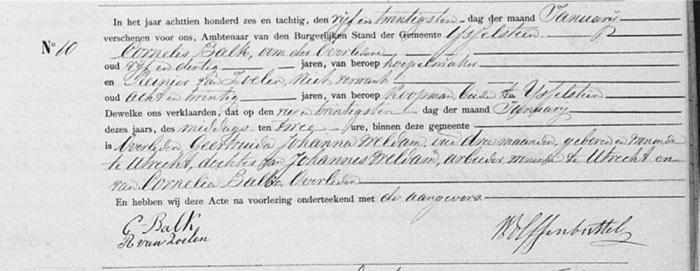 In het jaar achttien honderd zes en tachtig, den vijf en twintigsten dag der maand Januarij
verschenen voor ons, Ambtenaar van den Burgerlijken Stand der Gemeente IJsselstein.
No 10 Cornelis Balk, oom der Overledene
oud vijf en dertig jaren, van beroep hoepelmaker
en Reinier van Zoelen, niet verwant
oud acht en twintig jaren, van beroep Koopman beide te IJsselstein
Dewelke ons verklaarden, dat op den vier en twintigsten dag der maand Januarij
dezes jaars, des middags ten twee ure, binnen deze gemeente
is Overleden Geertruida Johanna Meldam, oud drie maanden, geboren en wonende
te Utrecht, dochter van Johannes Meldam, arbeider wonende te Utrecht en
van Cornelia Balk, Overleden
En hebben wij deze Acte na voorlezing onderteekend met de aangevers.
C Balk
R van Zoelen
Wolffenbuttel